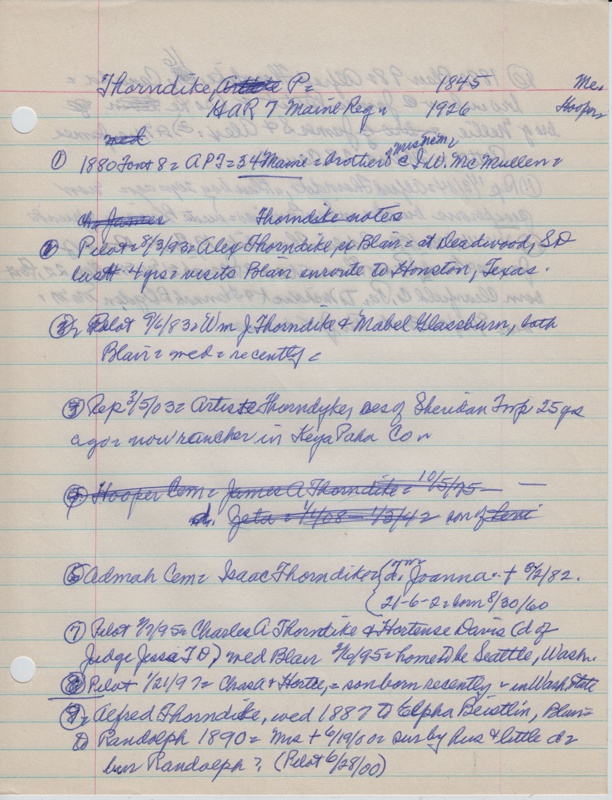 Thorndike, Artiste P= 1845 Me=
GAR 7 Maine Reg= 1926 Hooper
med
① 1880 Font 8= APT= 34 Maine= brother & c I.D. McMullen=
Thorndike notes
Pilot= 8/3/93= Alex Thorndike, ex Blair= at Deadwood, SD
last 4 yrs= visits Blair enroute to Houston, Texas.
Pilot 9/6/83= Wm J Thorndike & Mabel Glassburn, both
Blair= med= recently=
Rep 3/5/03= Artiste Thorndyke, res of Sheridan Twp 25 ys
ago= now rancher in Keya Paha Co
Hooper Cem= James A Thorndike= 10/5/75 —
d. Zeta= 1/1/08 - 1/3/42 son of Levi
⑥ Admah Cem= Isaac Thorndike= Joanna + 3/2/82.
21-6-2= born 8/30/60
⑦ Pilot 9/7/95= Charles A Thorndike & Hortense Davis (d of
Judge Jesse T D) med Blair 9/6/95= home to be Seattle, Wash.
⑧ Pilot 1/21/97= Chas & Horte,= son born recently= in Wash State
⑨= Alfred Thorndike, wed 1887 to Elpha Beistlin, Blair=
to Randolph 1890= Mrs + 6/19/00= sur by hus & little d=
bur Randolph? (Pilot 6/28/00)